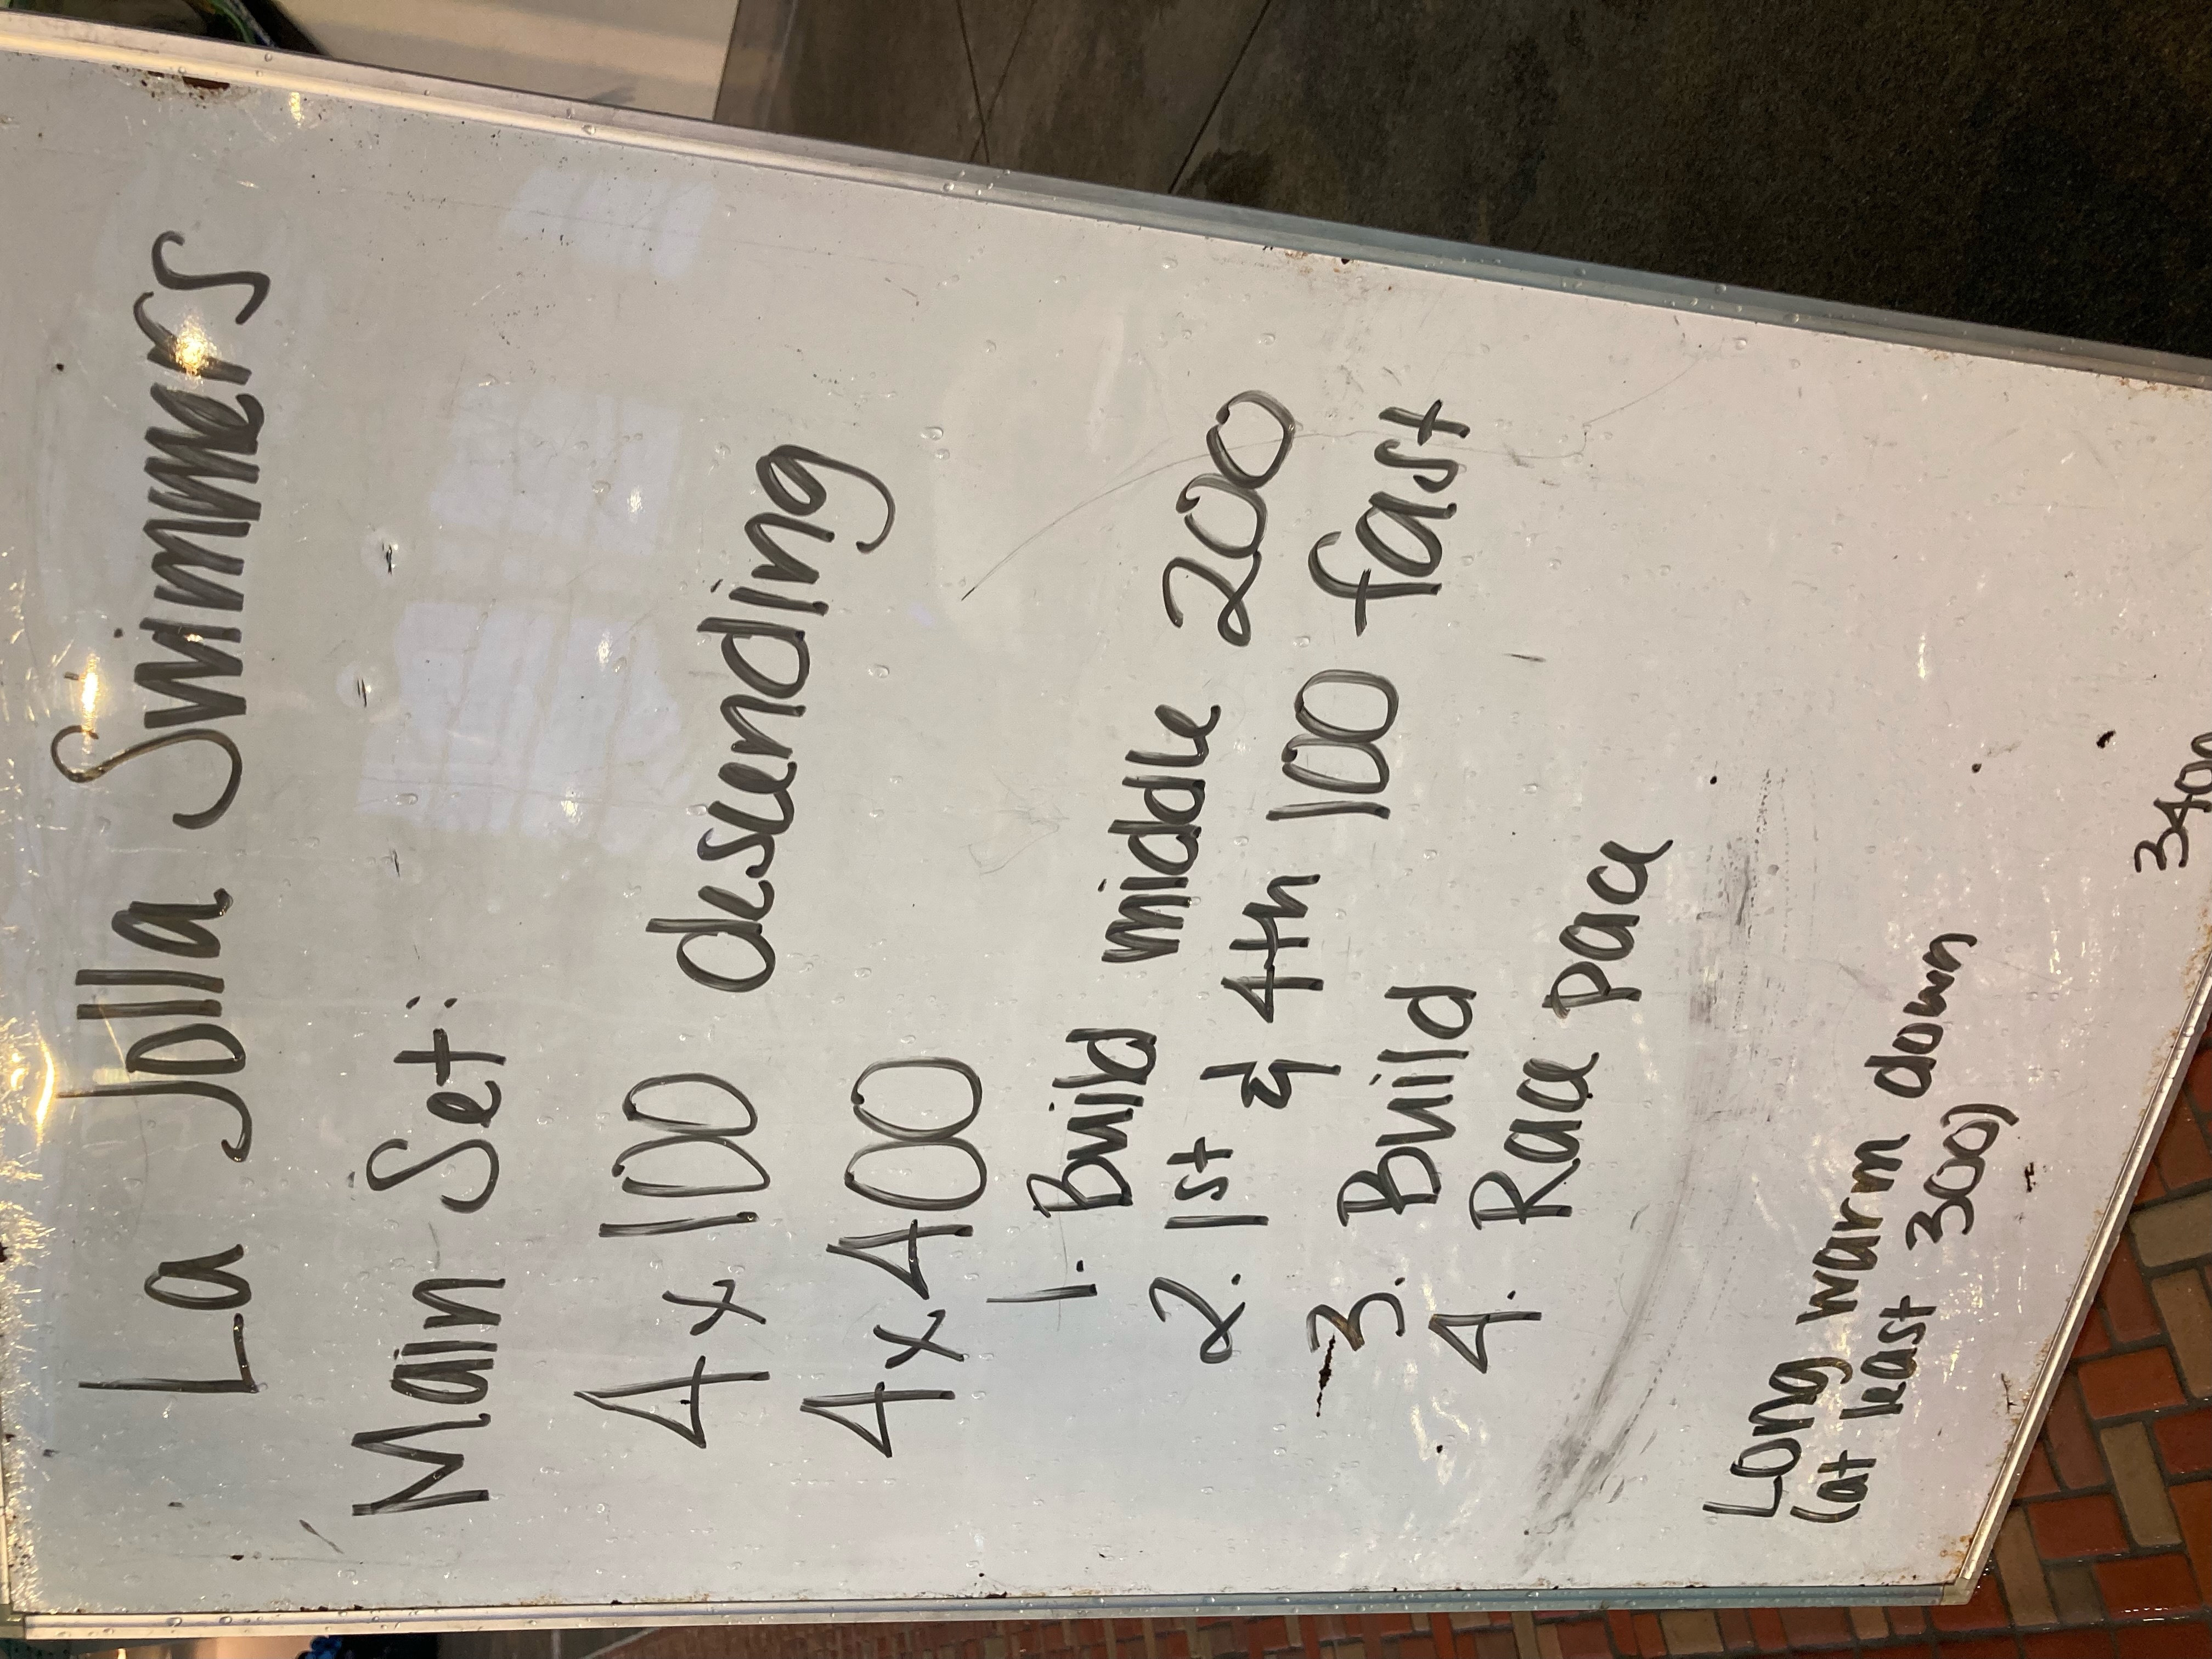 La Jolla Swimmers
Main Set:
4 x 100 descending
4 x 400
1. Build middle 200
2. 1st & 4th 100 fast
3. Build
4. Race pace
Long warm down
(at least 300)
3400